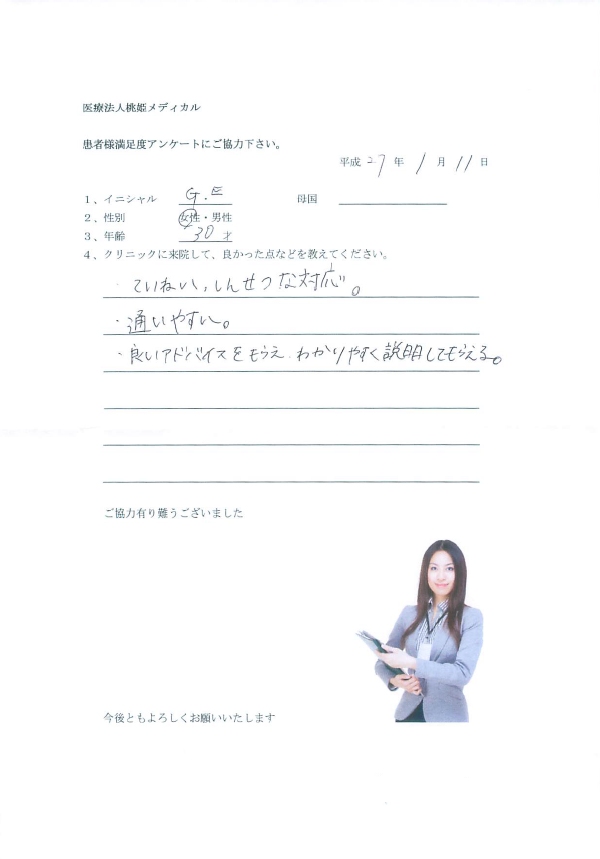 医療法人桃姫メディカル
患者様満足度アンケートにご協力下さい。
平成 27 年 1 月 11 日
1、イニシャル G.E 母国
2、性別 女性・男性
3、年齢 30 才
4、クリニックに来院して、良かった点などを教えてください。
・ていねい、しんせつな対応。
・通いやすい。
・良いアドバイスをもらえ、わかりやすく説明してもらえる。
ご協力有り難うございました
今後ともよろしくお願いいたします